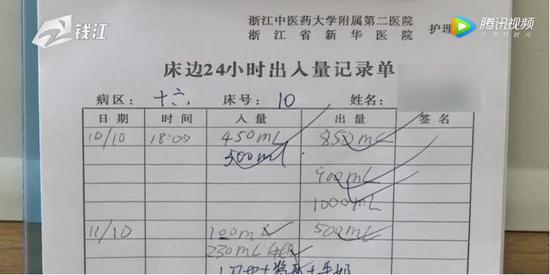 钱江
腾讯视频
浙江中医药大学附属第二医院
浙江省新华医院
护理
床边24小时出入量记录单
病区：十六 床号：10 姓名：
日期 时间 入量 出量 签名
10/10 18:00 450mL 850mL
500ml
900mL
1000mL
11/10 100mL 500mL
230mL